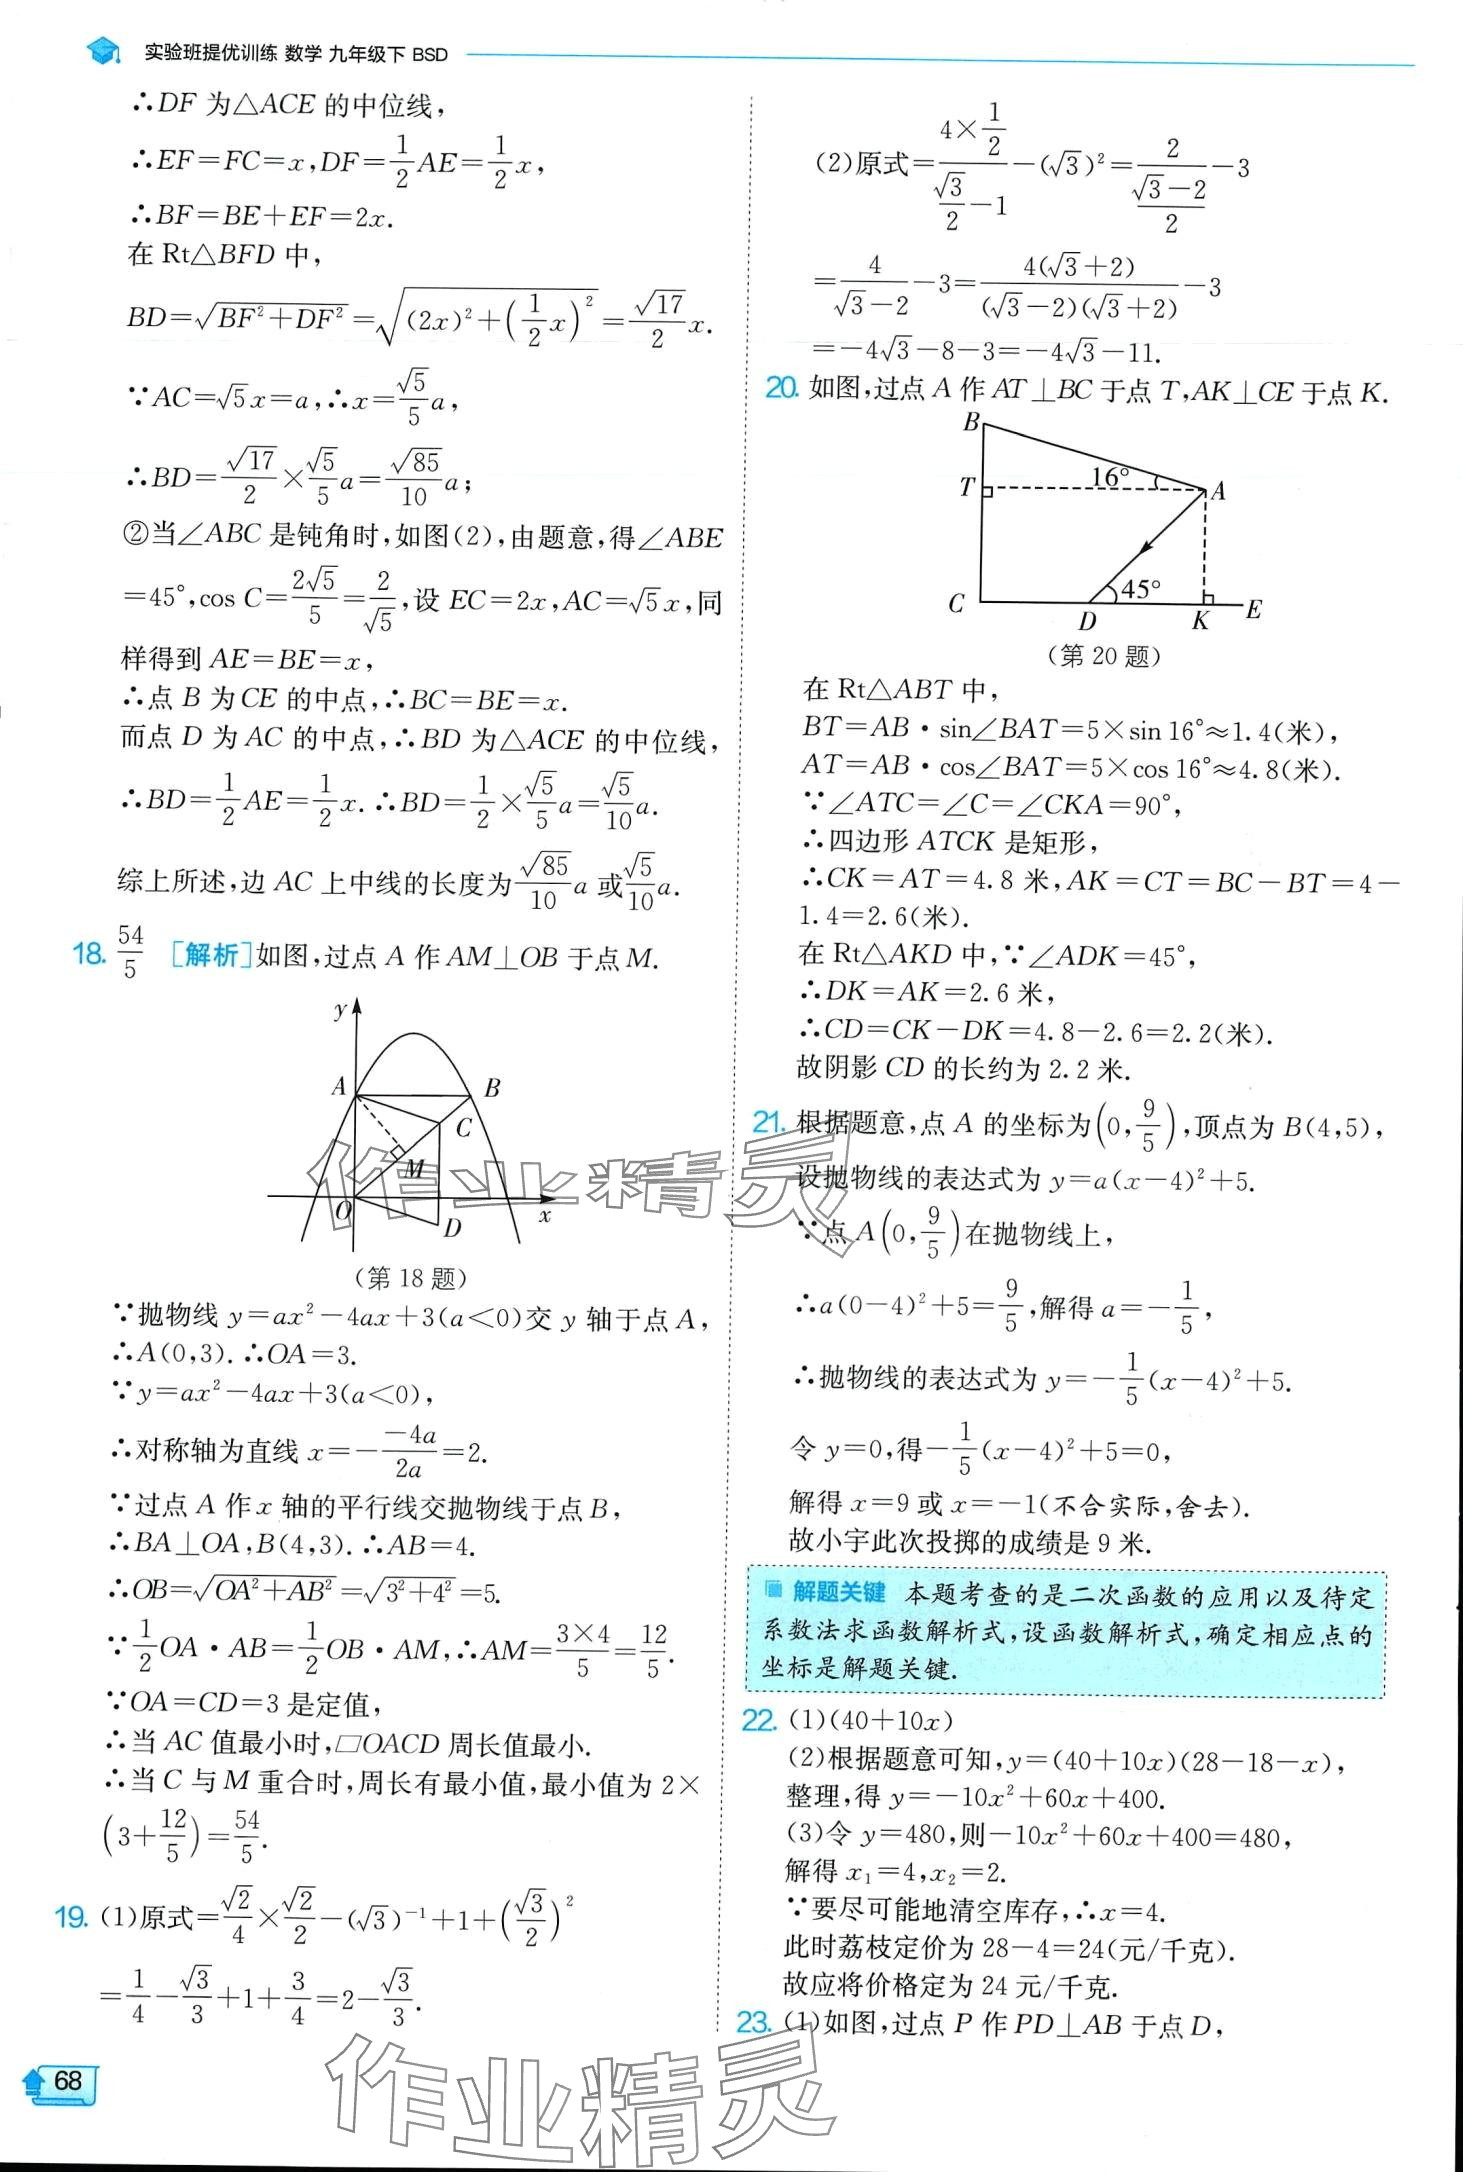 实验班提优训练 数学 九年级下 BSD
∴DF 为△ACE 的中位线,
∴EF=FC=x,DF=\frac{1}{2}AE=\frac{1}{2}x,
∴BF=BE+EF=2x.
在 Rt△BFD 中,
BD=\sqrt{BF²+DF²}=\sqrt{(2x)²+(\frac{1}{2}x)²}=\frac{\sqrt{17}}{2}x.
∵AC=\sqrt{5}x=a,∴x=\frac{\sqrt{5}}{5}a,
∴BD=\frac{\sqrt{17}}{2}×\frac{\sqrt{5}}{5}a=\frac{\sqrt{85}}{10}a;
②当∠ABC 是钝角时,如图(2),由题意,得∠ABE
=45°,cos C=\frac{2\sqrt{5}}{5}=\frac{2}{\sqrt{5}},设 EC=2x,AC=\sqrt{5}x,同
样得到 AE=BE=x,
∴点 B 为 CE 的中点,∴BC=BE=x.
而点 D 为 AC 的中点,∴BD 为△ACE 的中位线,
∴BD=\frac{1}{2}AE=\frac{1}{2}x. ∴BD=\frac{1}{2}×\frac{\sqrt{5}}{5}a=\frac{\sqrt{5}}{10}a.
综上所述,边 AC 上中线的长度为\frac{\sqrt{85}}{10}a 或\frac{\sqrt{5}}{10}a.
18. \frac{54}{5} [解析]如图,过点 A 作 AM⊥OB 于点 M.
y
A
B
C
M
O
D
x
(第 18 题)
∵抛物线 y=ax²-4ax+3(a<0)交 y 轴于点 A,
∴A(0,3). ∴OA=3.
∵y=ax²-4ax+3(a<0),
∴对称轴为直线 x=-\frac{-4a}{2a}=2.
∵过点 A 作 x 轴的平行线交抛物线于点 B,
∴BA⊥OA,B(4,3). ∴AB=4.
∴OB=\sqrt{OA²+AB²}=\sqrt{3²+4²}=5.
∵\frac{1}{2}OA·AB=\frac{1}{2}OB·AM,∴AM=\frac{3×4}{5}=\frac{12}{5}.
∵OA=CD=3 是定值,
∴当 AC 值最小时,▱OACD 周长值最小.
∴当 C 与 M 重合时,周长有最小值,最小值为 2×
(3+\frac{12}{5})=\frac{54}{5}.
19. (1)原式=\frac{\sqrt{2}}{4}×\frac{\sqrt{2}}{2}-(\sqrt{3})⁻¹+1+(\frac{\sqrt{3}}{2})²
=\frac{1}{4}-\frac{\sqrt{3}}{3}+1+\frac{3}{4}=2-\frac{\sqrt{3}}{3}.
68
(2)原式=\frac{4×\frac{1}{2}}{\frac{\sqrt{3}}{2}-1}-(\sqrt{3})²=\frac{2}{\frac{\sqrt{3}-2}{2}}-3
=\frac{4}{\sqrt{3}-2}-3=\frac{4(\sqrt{3}+2)}{(\sqrt{3}-2)(\sqrt{3}+2)}-3
=-4\sqrt{3}-8-3=-4\sqrt{3}-11.
20. 如图,过点 A 作 AT⊥BC 于点 T,AK⊥CE 于点 K.
B
16°
T
A
45°
C
D
K
E
(第 20 题)
在 Rt△ABT 中,
BT=AB·sin∠BAT=5×sin 16°≈1.4(米),
AT=AB·cos∠BAT=5×cos 16°≈4.8(米).
∵∠ATC=∠C=∠CKA=90°,
∴四边形 ATCK 是矩形,
∴CK=AT=4.8 米,AK=CT=BC-BT=4-
1.4=2.6(米).
在 Rt△AKD 中,∵∠ADK=45°,
∴DK=AK=2.6 米,
∴CD=CK-DK=4.8-2.6=2.2(米).
故阴影 CD 的长约为 2.2 米.
21. 根据题意,点 A 的坐标为(0,\frac{9}{5}),顶点为 B(4,5),
设抛物线的表达式为 y=a(x-4)²+5.
∵点 A(0,\frac{9}{5})在抛物线上,
∴a(0-4)²+5=\frac{9}{5},解得 a=-\frac{1}{5},
∴抛物线的表达式为 y=-\frac{1}{5}(x-4)²+5.
令 y=0,得-\frac{1}{5}(x-4)²+5=0,
解得 x=9 或 x=-1(不合实际,舍去).
故小宇此次投掷的成绩是 9 米.
解题关键 本题考查的是二次函数的应用以及待定
系数法求函数解析式,设函数解析式,确定相应点的
坐标是解题关键.
22. (1)(40+10x)
(2)根据题意可知,y=(40+10x)(28-18-x),
整理,得 y=-10x²+60x+400.
(3)令 y=480,则-10x²+60x+400=480,
解得 x₁=4,x₂=2.
∵要尽可能地清空库存,∴x=4.
此时荔枝定价为 28-4=24(元/千克).
故应将价格定为 24 元/千克.
23. (1)如图,过点 P 作 PD⊥AB 于点 D,
作业精灵
作业精灵